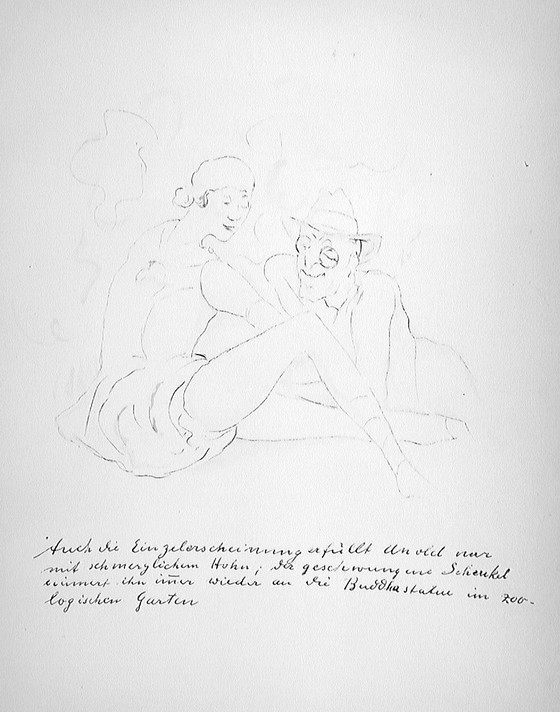 Auch die Einzelerscheinung erfüllt Arnold nur
mit schmerzlichem Hohn; der geschwungene Schenkel
erinnert ihn im̄er wieder an die Buddhastatue im zoo-
logischen Garten